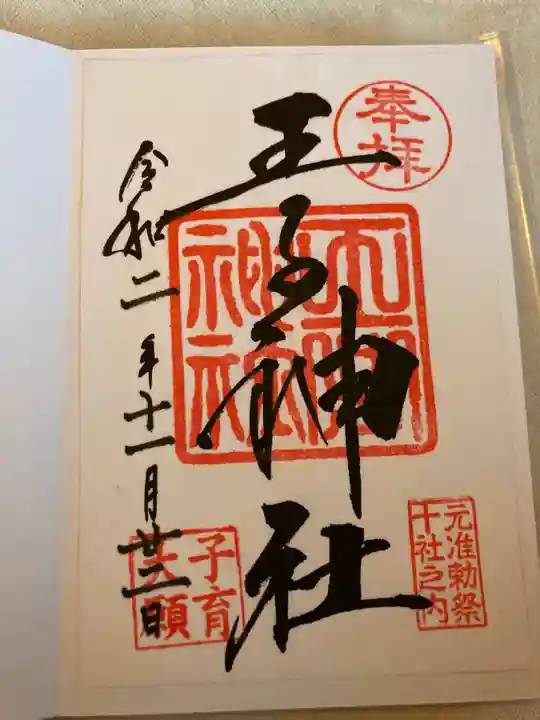 奉拝
王子神社
元准勅祭
十社之内
子育
大願
令和二年十一月廿三日